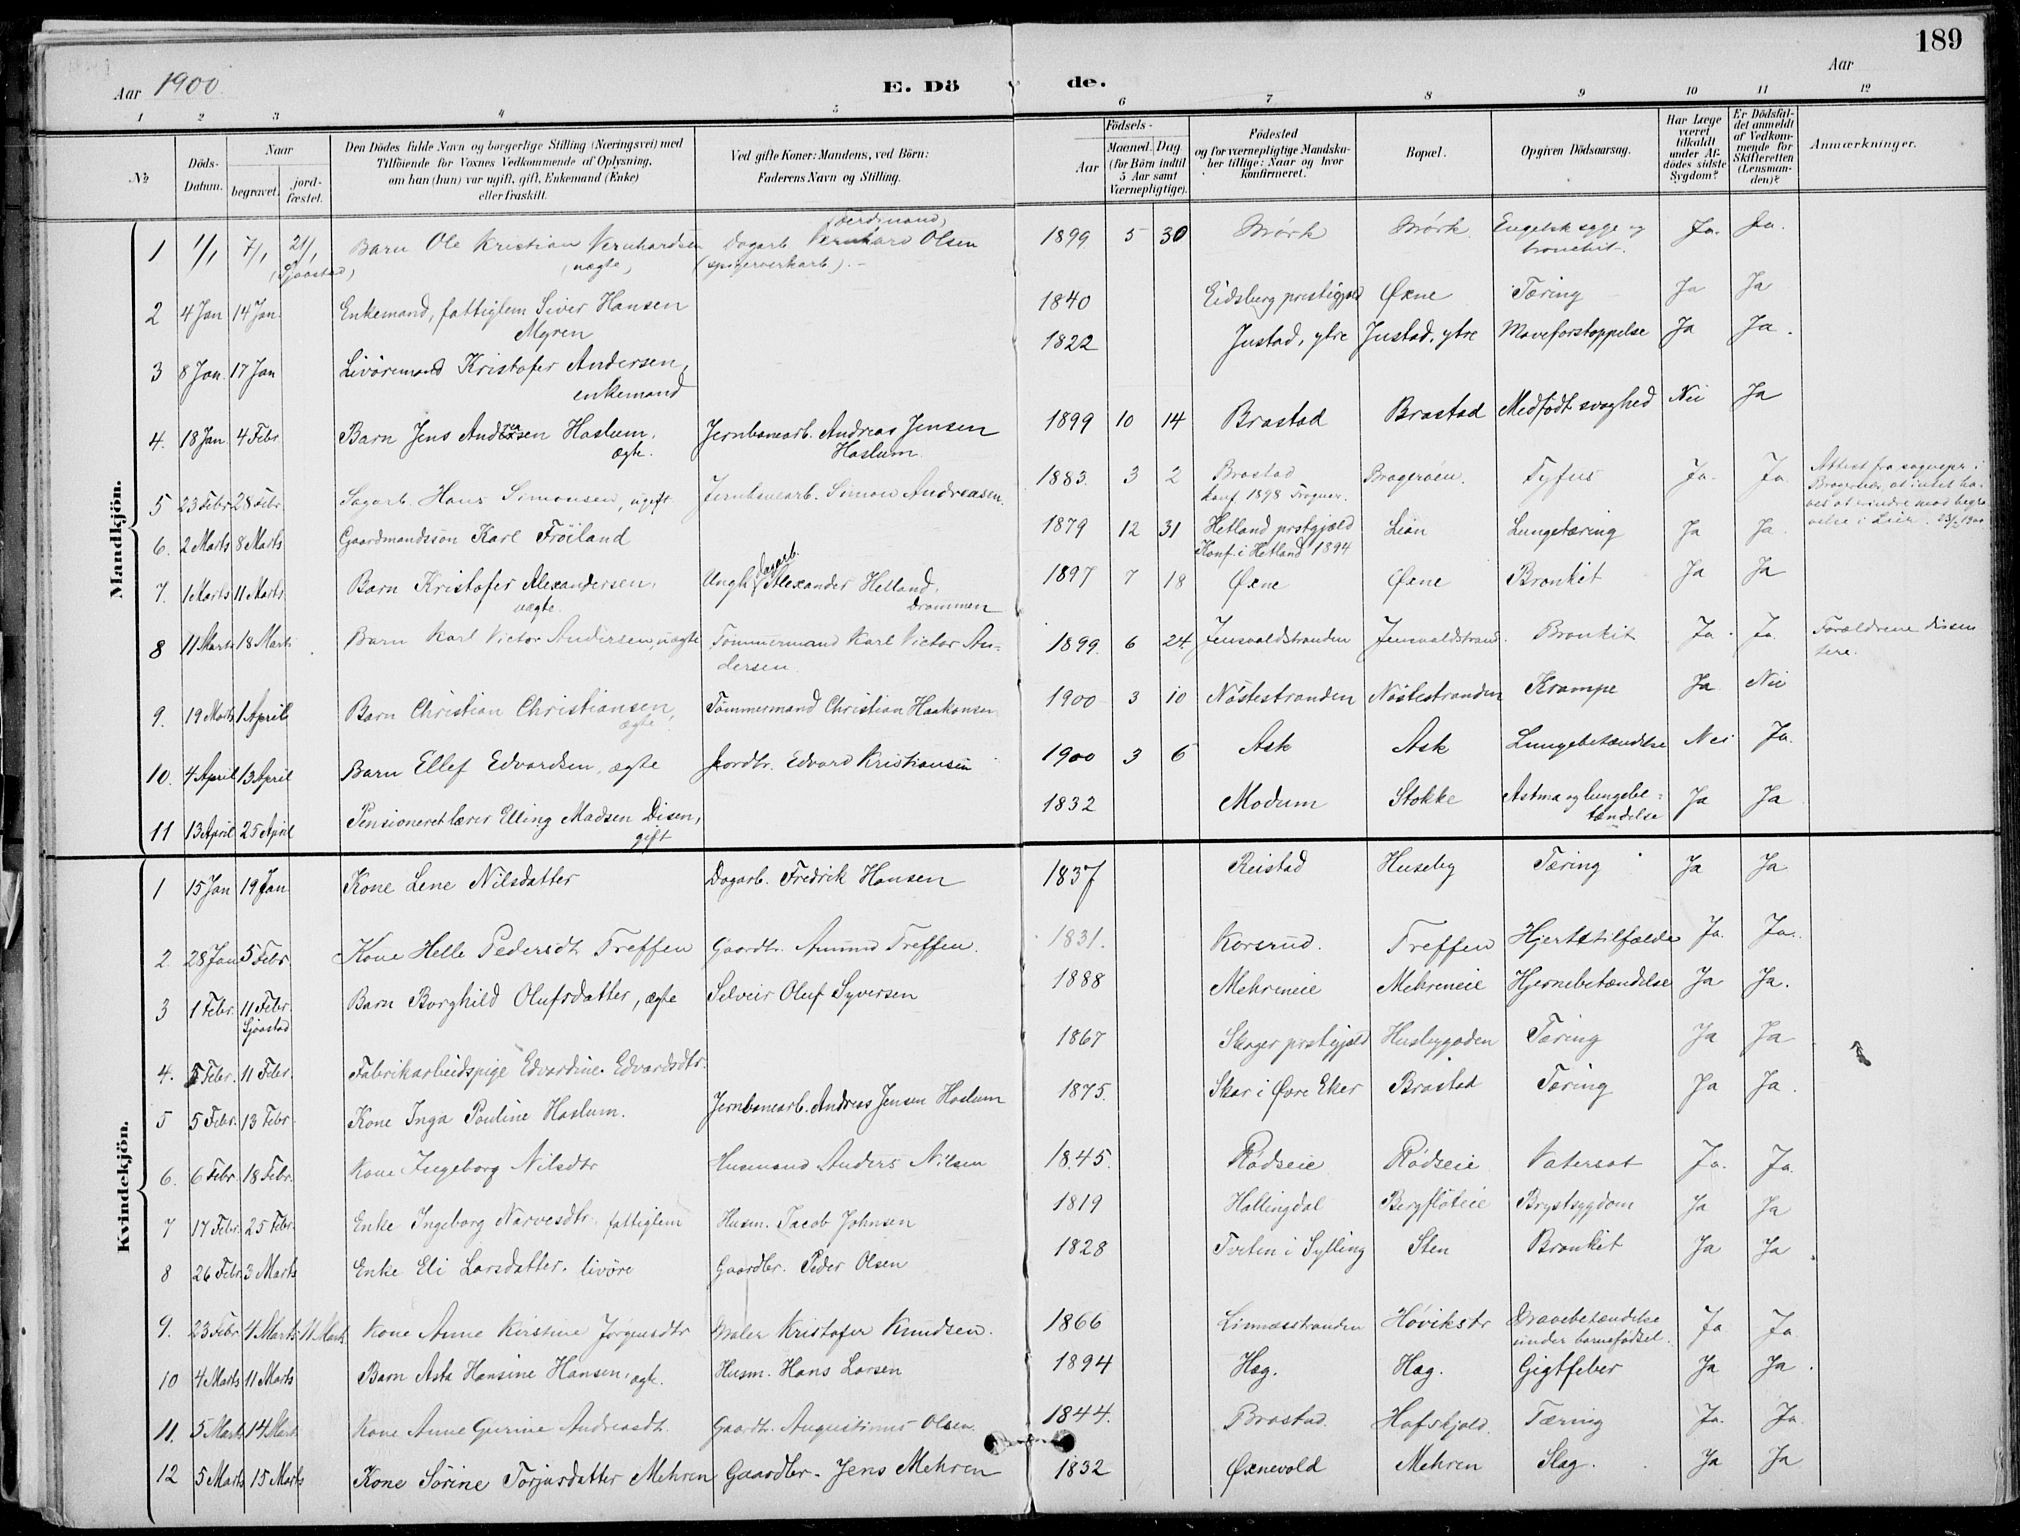 189
Aar 1900. E. Dö de. Aar
1 2 3 4 5 6 7 8 9 10 11 12
№ Döds-Datum. Naar begravet. jordfæstet. Den Dödes fulde Navn og borgerlige Stilling (Næringsvei) med Tilföiende for Voxnes Vedkommende af Oplysning, om han (hun) var ugift, gift, Enkemand (Enke) eller fraskilt. Ved gifte Koner: Mandens, ved Börn: Faderens Navn og Stilling. Födsels- Aar Maaned. Dag (for Börn indtil 5 Aar samt Værnepligtige). Födested og for værnepligtige Mandskaber tillige: Naar og hvor konfirmeret. Bopæl. Opgiven Dödsaarsag. Har Læge været tilkaldt under Afdödes sidste Sygdom? Er Dödsfaldet anmeldt af Vedkommende for Skifteretten (Lensmanden)? Anmærkninger.
Mandkjön.
1 1/1 7/1 21/1 (Sjåstad) Barn Ole Kristian Vernhardsen (uægte) Dagarb. (Ferdinand) Vernhard Olsen (spigerverkarb). 1899 5 30 Mörk Mörk Engelsk syge og bronchit. Ja. Ja.
2 4 Jan 14 Jan Enkemand, fattiglem Siver Hansen Myren 1840 Eidsberg prestigjeld Øxne Tæring Ja Ja
3 8 Jan. 17 Jan Livöremand Kristofer Andersen, enkemand 1822 Justad, ytre Justad, ytre Maveforstoppelse Ja Ja.
4. 18 Jan. 4 Febr. Barn Jens Andreasen Haslum, ægte. Jernbanearb. Andreas Jensen Haslum. 1899 10 14 Brastad Brastad Medfödt svaghed Nei Ja
5 23 Febr 28 Febr. Sagarb. Hans Simonsen, ugift. Jernbanearb. Simon Andreasen. 1883. 3 2 Brastad konf 1898 Frogner. Bragerøen. Tyfus Ja. Ja. Attest fra sognepr. i Bragernes, at intet haves at hindre mod begravelse i Lier. 23/2 1900
6. 2 Marts 8 Marts Gaardmandssön Karl Fröiland 1879 12 31 Hetland prstgjæld Konf. i Hetland 1894 Lian Lungetæring Ja Ja.
7. 1 Marts 11 Marts. Barn Kristofer Alexandersen, uægte. Ungk. dagarb. Alexander Helland, Drammen 1897 7 18 Øxne Øxne Bronkit Ja Ja
8 11 Marts 18 Marts Barn Karl Victor Andersen, uægte Tömmermand Karl Victor Andersen. 1899. 6 24. Jensvoldstranden Jensvoldstrand. Bronkit Ja. Ja. Forældrene dissentere.
9. 19 Marts 1 April Barn Christian Christiansen, ægte Tömmermand Christian Haakonsen 1900 3 10 Nöstestranden Nöstestranden Krampe Ja Nei
10. 4 April 13 April Barn Ellef Edvardsen, ægte Jordbr. Edvard Kristiansen 1900 3 6 Ask Ask Lungebetændelse Nei Ja.
11 13 April 25 April Pensioneret lærer Elling Madsen Disen, gift 1832 Modum Stokke Astma og lungebetændelse Ja Ja
Kvindekjön.
1 15 Jan 19 Jan Kone Lene Nilsdatter Dagarb. Fredrik Hansen 1837 Reistad Huseby Tæring Ja Ja
2. 28 Jan 5 Febr. Kone Helle Pedersdt Treffen Gaardbr. Amund Treffen. 1831. Korsrud. Treffen Hjertetilfælde Ja. Ja.
3 1 Febr. 11 Febr. Sjåstad Barn Borghild Olufsdatter, ægte Selveier Oluf Syversen 1888 Mehreneie Mehreneie Hjernebetændelse Ja Ja.
4. 5 Febr. 11 Febr. Fabrikarbeidspige Edvardine Edvardsdtr. 1867 Skoger prestgjeld Husebygaden Tæring Ja Ja
5 5 Febr. 13 Febr. Kone Inga Pauline Haslum. Jernbanearb. Andreas Jensen Haslum 1875. Skar i Øvre Eker Brastad Tæring Ja Ja.
6. 6 Febr. 18 Febr. Kone Ingeborg Nilsdtr Husmand Anders Nilsen 1845. Rödseie Rödseie Vatersot Ja. Ja.
7 17 Febr. 25 Febr. Enke Ingeborg Narvesdtr. fattiglem Husm. Jacob Johnsen 1819 Hallingdal Bergflöteie Brystsygdom Ja Ja
8 26 Febr. 3 Marts Enke Eli Larsdatter. livöre Gaardbr. Peder Olsen 1828 Tveten i Sylling Sten Bronkit Ja Ja.
9. 23 Febr. 4 Marts 11 Marts Kone Anne Kirstine Jörgensdtr Maler Kristofer Knudsen. 1866 Linnæsstranden Hövikstr Mavebetændelse under barnefödsel. Ja Ja.
10 4 Marts 11 Marts Barn Asta Hansine Hansen, ægte. Husm. Hans Larsen 1894 Hæg. Hæg. Gigtfeber Ja Ja.
11. 5 Marts 14 Marts Kone Anne Gurine Andreasdt. Gaardbr. Augustinus Olsen. 1844. Brastad. Hafskjold. Tæring Ja. Ja.
12 5 Marts 15 Marts Kone Sörine Torjusdatter Mehren Gaardbr. Jens Mehren 1832 Øxnevold Mehren Slag. Ja Ja